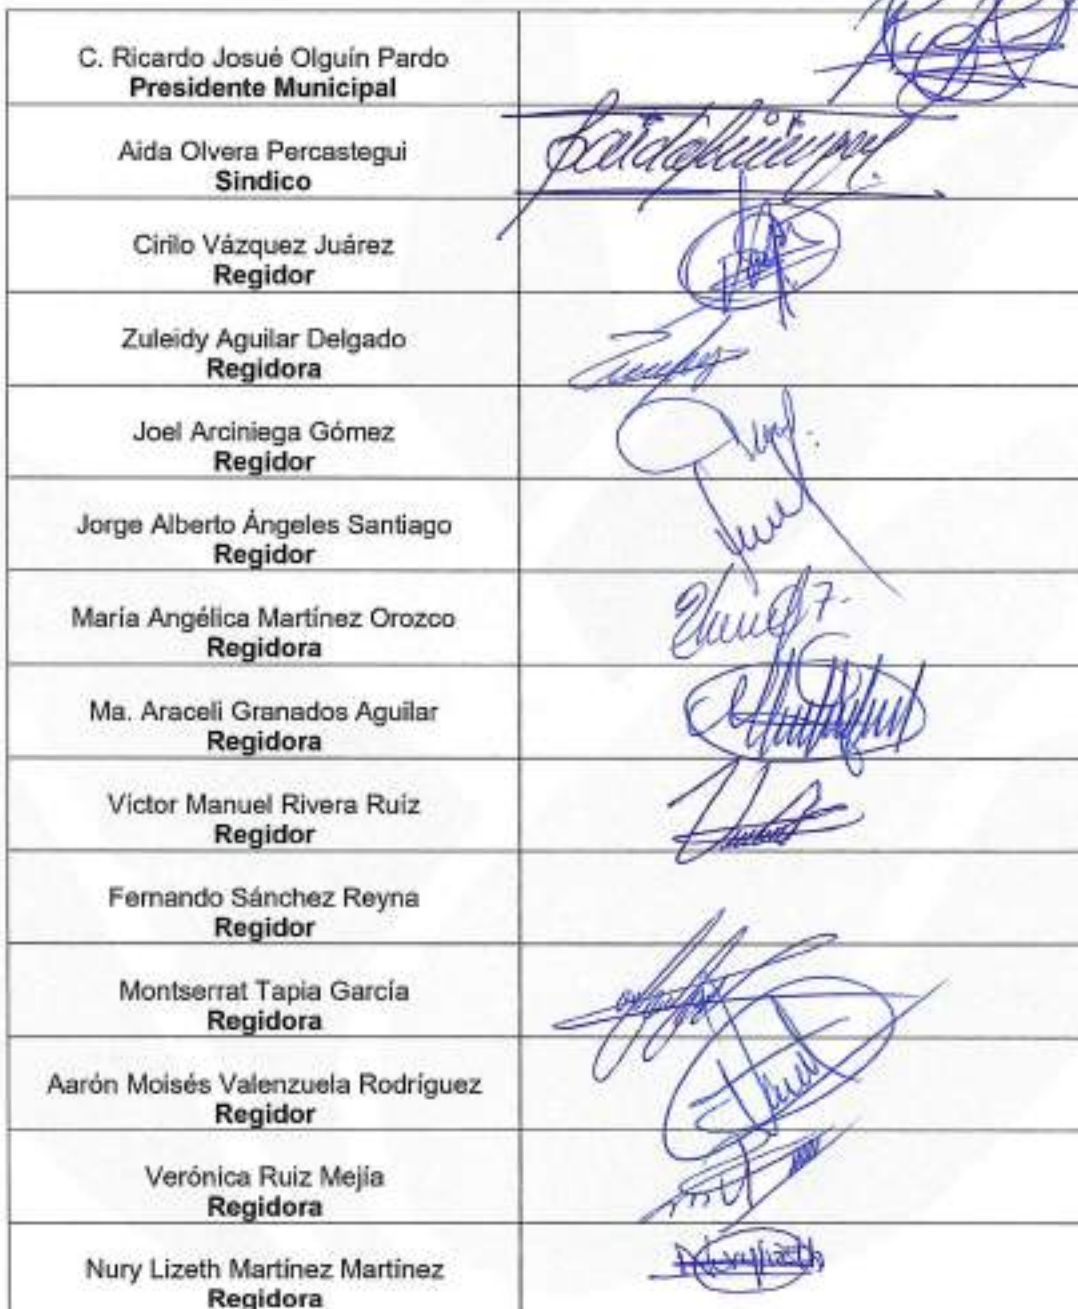 C. Ricardo Josué Olguín Pardo
Presidente Municipal
Aida Olvera Percastegui
Sindico
Cirilo Vázquez Juárez
Regidor
Zuleidy Aguilar Delgado
Regidora
Joel Arciniega Gómez
Regidor
Jorge Alberto Ángeles Santiago
Regidor
María Angélica Martínez Orozco
Regidora
Ma. Araceli Granados Aguilar
Regidora
Victor Manuel Rivera Ruíz
Regidor
Fernando Sánchez Reyna
Regidor
Montserrat Tapia García
Regidora
Aarón Moisés Valenzuela Rodríguez
Regidor
Verónica Ruiz Mejía
Regidora
Nury Lizeth Martínez Martínez
Regidora